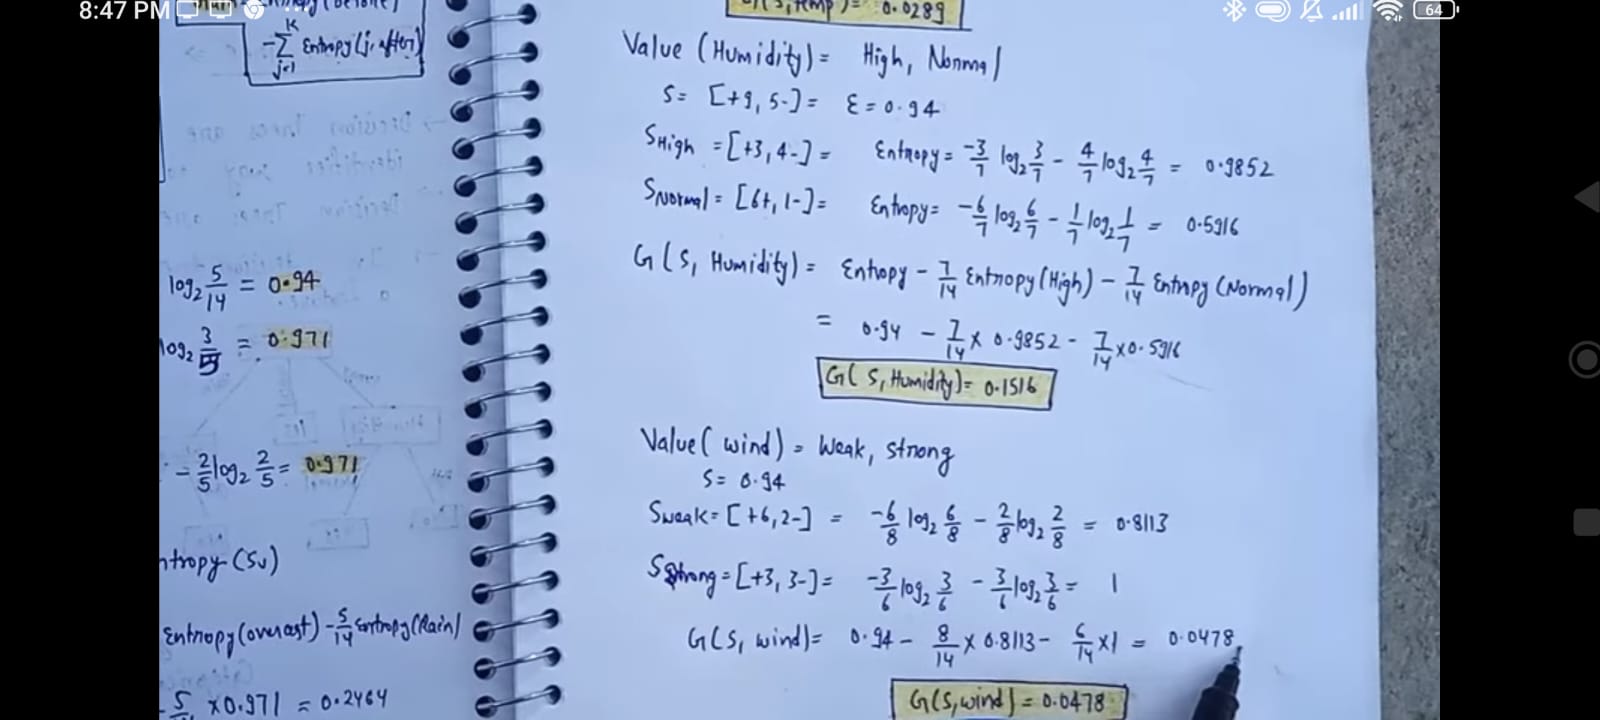 8:47 PM
64
-Σ Entropy(j, after)
K
j=1
log₂ 5/14 = 0.94
log₂ 3/5 = 0.971
- 2/5 log₂ 2/5 = 0.971
ntropy (Sv)
Entropy(overcast) - 5/14 Entropy(Rain)
5/ x0.971 = 0.2464
G(S, Temp) = 0.0289
Value (Humidity) = High, Normal
S = [+9, 5-] = E = 0.94
SHigh = [+3, 4-] = Entropy = -3/7 log₂ 3/7 - 4/7 log₂ 4/7 = 0.9852
SNormal = [6+, 1-] = Entropy = -6/7 log₂ 6/7 - 1/7 log₂ 1/7 = 0.5916
G(S, Humidity) = Entropy - 7/14 Entropy(High) - 7/14 Entropy(Normal)
= 0.94 - 7/14 x 0.9852 - 7/14 x 0.5916
G(S, Humidity) = 0.1516
Value(wind) = Weak, strong
S = 0.94
Sweak = [+6, 2-] = -6/8 log₂ 6/8 - 2/8 log₂ 2/8 = 0.8113
Sstrong = [+3, 3-] = -3/6 log₂ 3/6 - 3/6 log₂ 3/6 = 1
G(S, wind) = 0.94 - 8/14 x 0.8113 - 6/14 x 1 = 0.0478
G(S, wind) = 0.0478